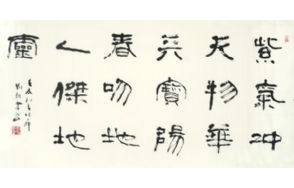 紫氣冲
天物華
天寶陽
春吻地
人傑地
靈